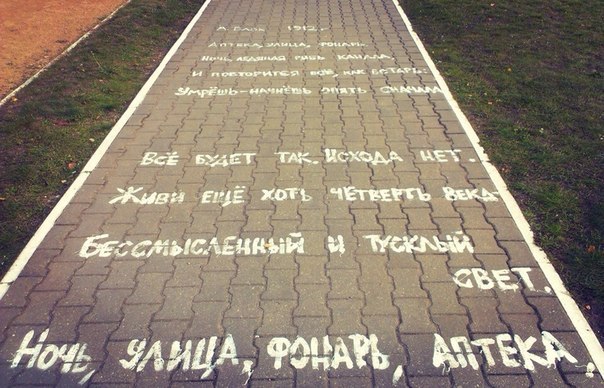 Ночь, улица, фонарь, аптека,
Бессмысленный и тусклый
свет.
Живи ещё хоть четверть века-
Всё будет так. Исхода нет.
Умрёшь-начнёшь опять сначала
И повторится всё, как встарь:
Ночь, ледяная рябь канала,
Аптека, улица, фонарь.
А. Блок 1912 г.